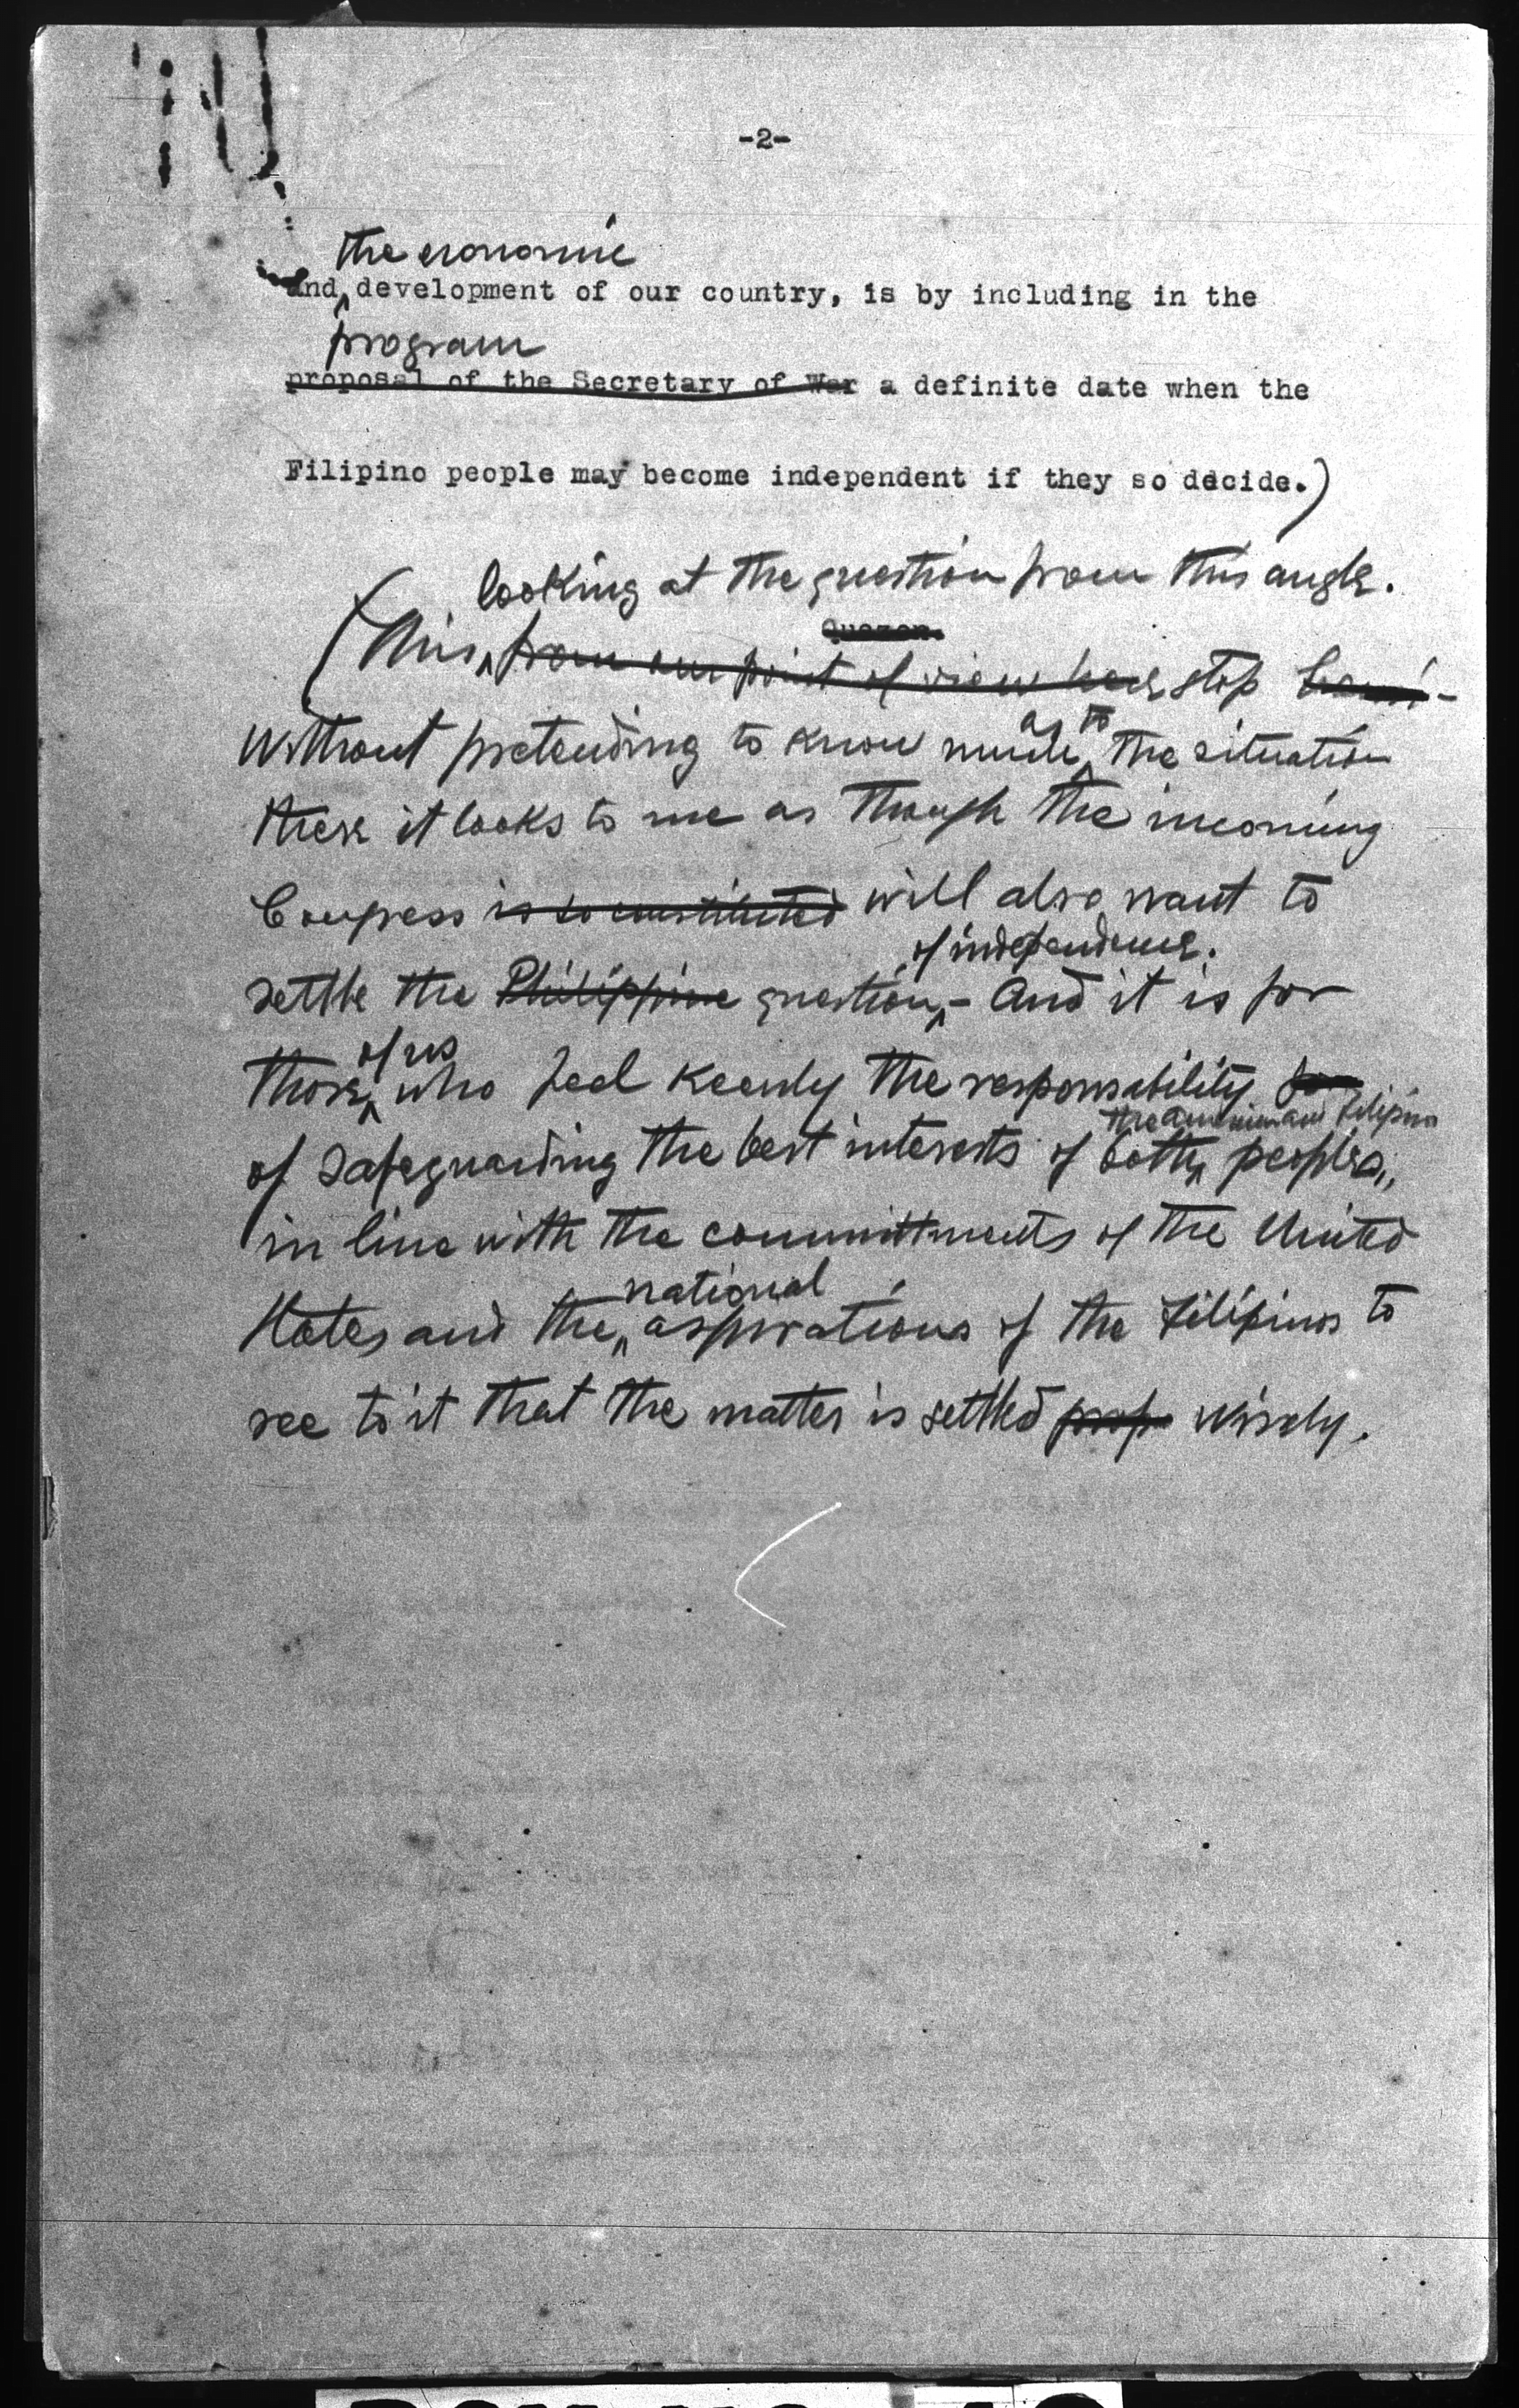 -2-
the economic
and development of our country, is by including in the
program
proposal of the Secretary of War a definite date when the
Filipino people may become independent if they so decide.)
looking at the question from this angle.
Quezon.
(This from our point of view here stop
Without pretending to know much as to the situation
there it looks to me as though the incoming
Congress is so constituted will also want to
of independence.
settle the Philippine question - And it is for
of us
those who feel keenly the responsability for
the American and Filipino
of safeguarding the best interests of both peoples,
in line with the committments of the United
national
States and the aspirations of the Filipinos to
see to it that the matter is settled prop wisely.